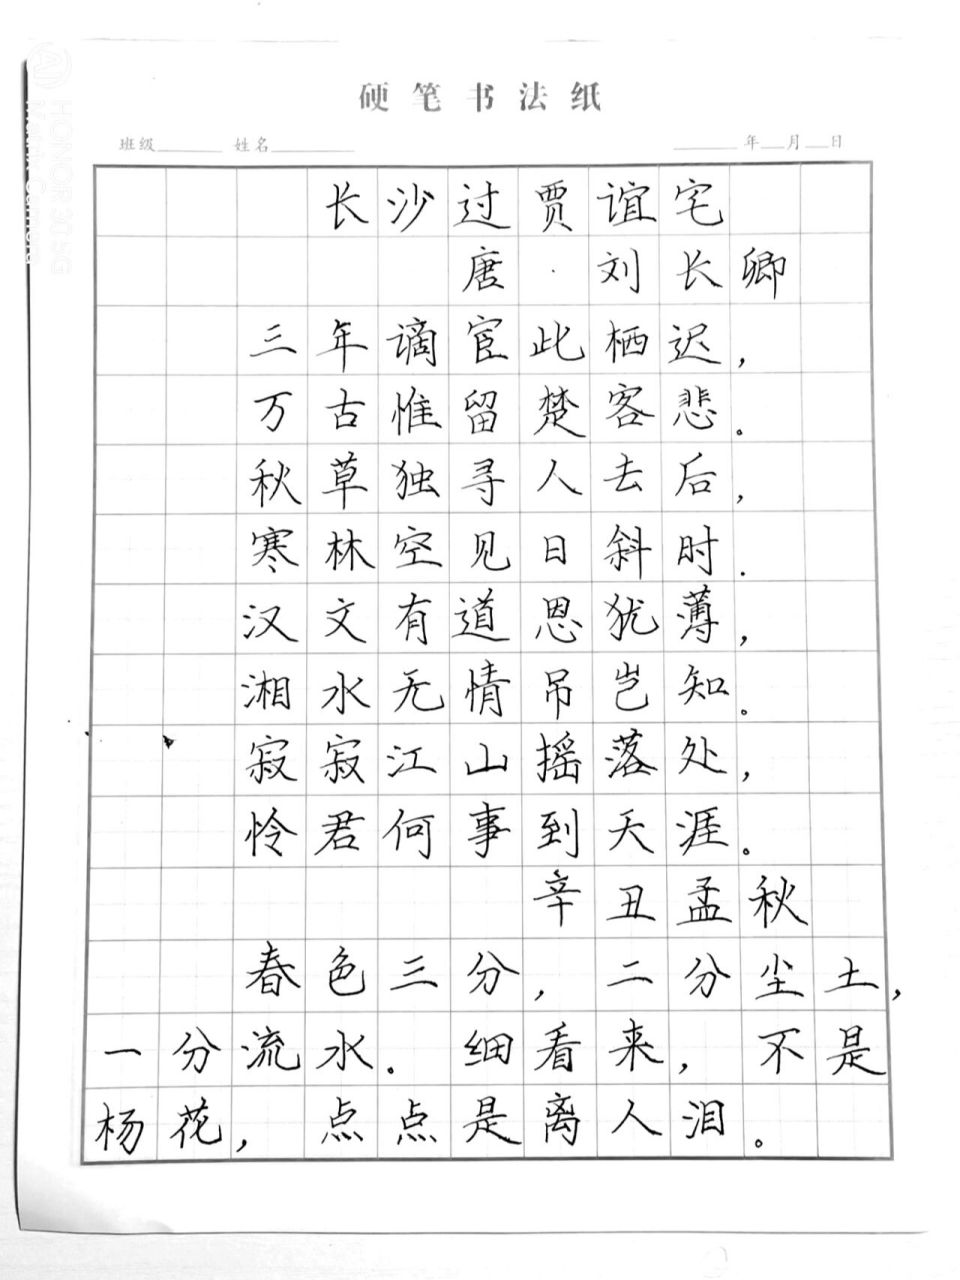 硬笔书法纸
班级 姓名 年 月 日
长沙过贾谊宅
唐·刘长卿
三年谪宦此栖迟，
万古惟留楚客悲。
秋草独寻人去后，
寒林空见日斜时.
汉文有道恩犹薄，
湘水无情吊岂知。
寂寂江山摇落处，
怜君何事到天涯。
辛丑孟秋
春色三分，二分尘土，
一分流水.细看来，不是
杨花，点点是离人泪。
HONOR 30 5G
Matrix Camera